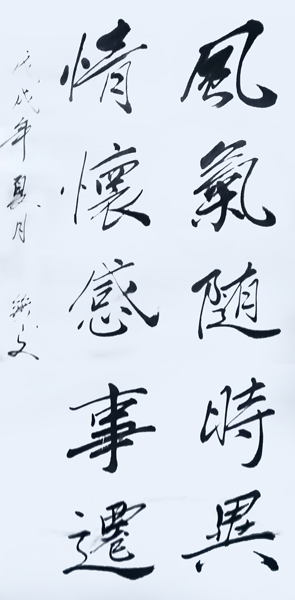 風氣随時異
情懷感事遷
戊戌年夏月